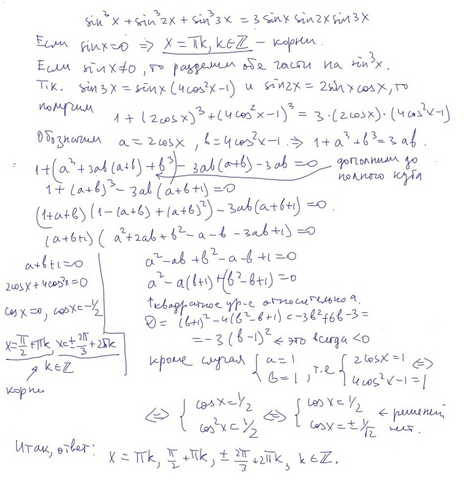 sin³x + sin³2x + sin³3x = 3 sinx sin2x sin3x
Если sinx=0 ⇒ x=πk, k∈ℤ – корни.
Если sinx≠0, то разделим обе части на sin³x.
Т.к. sin3x = sinx(4cos²x-1) и sin2x = 2sinx cosx, то
получим 1 + (2cosx)³ + (4cos²x-1)³ = 3·(2cosx)·(4cos²x-1)
Обозначим a=2cosx, b=4cos²x-1. ⇒ 1+a³+b³=3ab.
1+(a³+3ab(a+b)+b³)-3ab(a+b)-3ab=0
дополним до
полного куба
1+(a+b)³-3ab(a+b+1)=0
(1+a+b)(1-(a+b)+(a+b)²)-3ab(a+b+1)=0.
(a+b+1)(a²+2ab+b²-a-b-3ab+1)=0
a+b+1=0
2cosx+4cos²x=0
cosx=0, cosx=-1/2
x=π/2+πk, x=±2π/3+2πk
k∈ℤ
корни
a²-ab+b²-a-b+1=0
a²-a(b+1)+(b²-b+1)=0
↑ квадратное ур-е относительно a.
D=(b+1)²-4(b²-b+1)=-3b²+6b-3=
=-3(b-1)² ← это всегда <0
кроме случая { a=1 b=1, т.е { 2cosx=1 4cos²x-1=1 ⇔
⇔ { cosx=1/2 cos²x=1/2 ⇔ { cosx=1/2 cosx=±1/√2 ← решений нет.
Итак, ответ: x=πk, π/2+πk, ±2π/3+2πk, k∈ℤ.